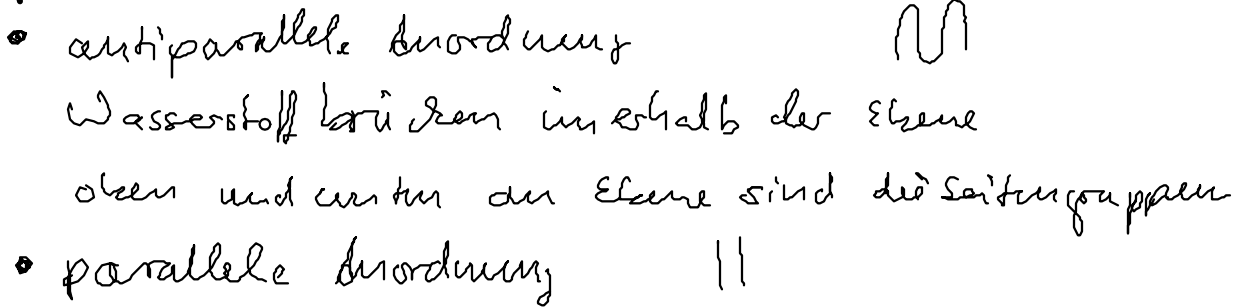 • antiparallele Anordnung
Wasserstoffbrücken innerhalb der Ebene
oben und unten an Ebene sind die Seitengruppen
• parallele Anordnung